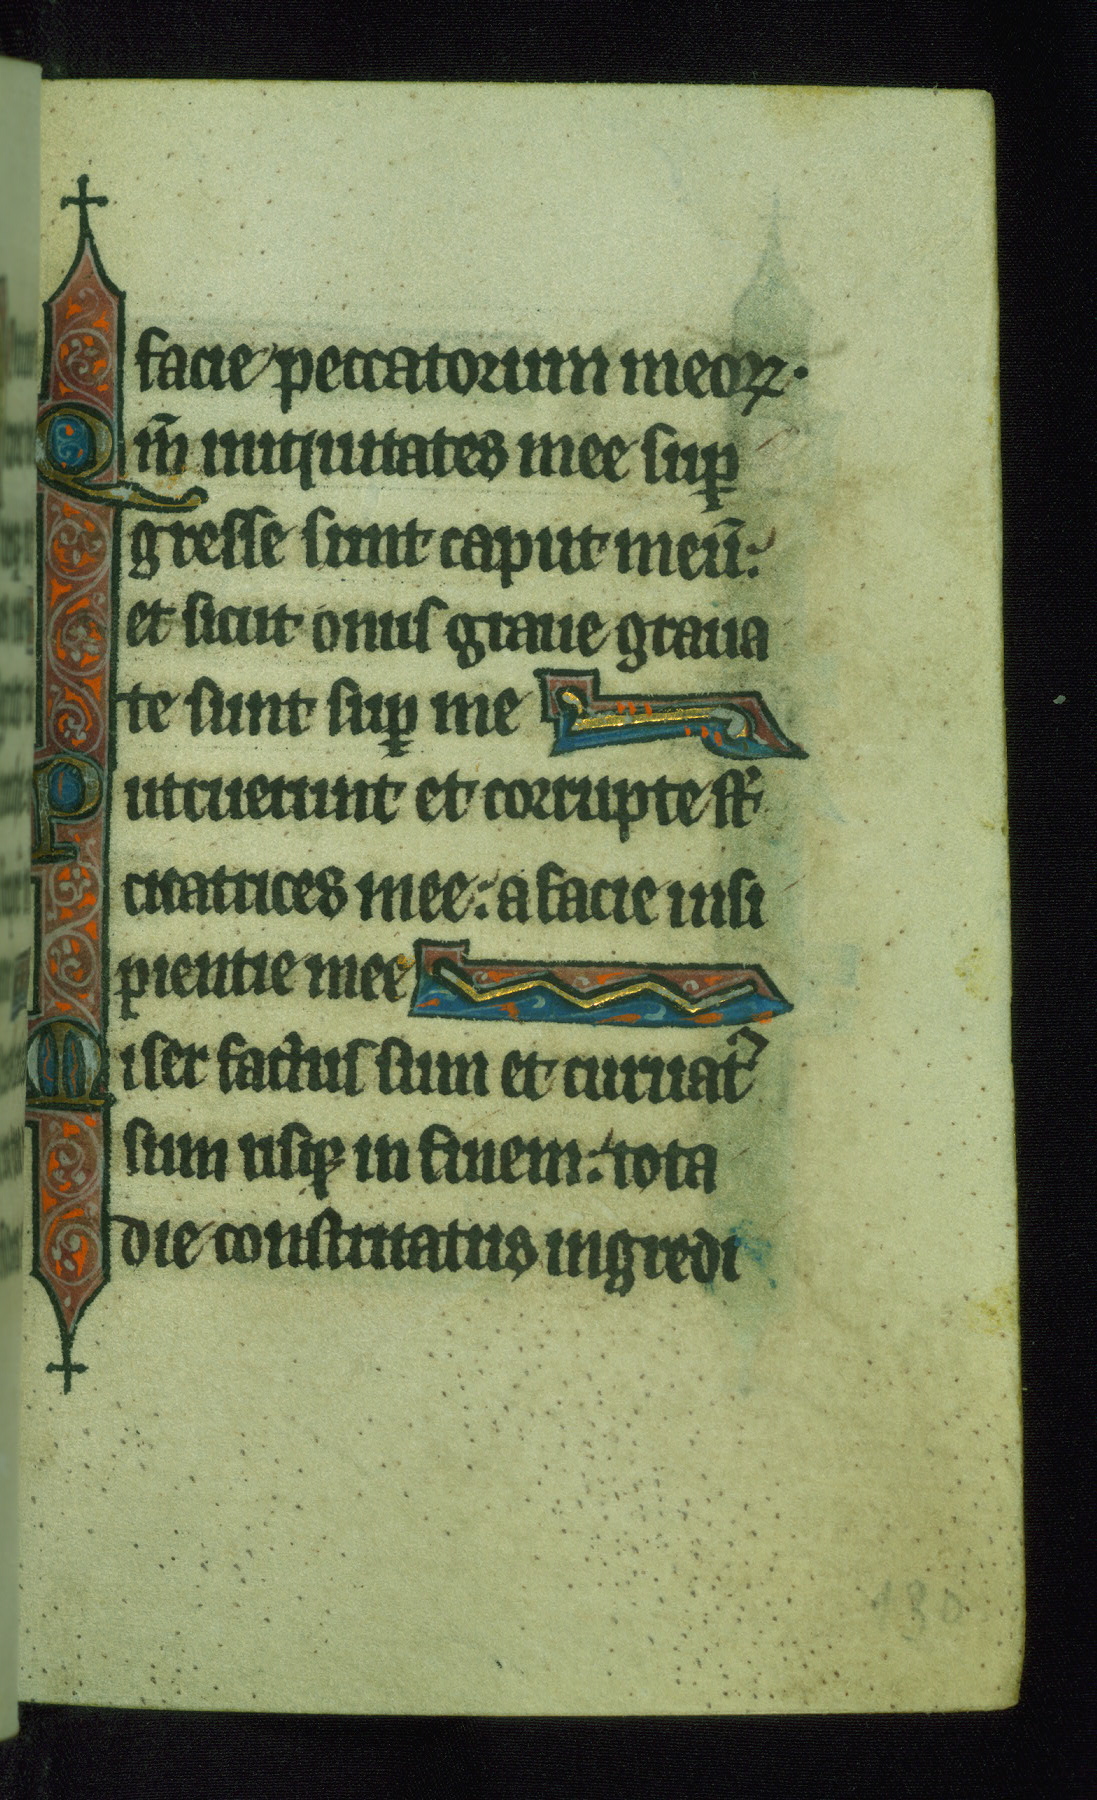 facie peccatorum meoꝝ·
Qm̄ iniquitates mee suꝑ
gresse sunt caput meū:
et sicut onus graue graua
te sunt suꝑ me
Putruerunt et corrupte st̄
cicatrices mee: a facie insi
pientie mee
Miser factus sum et curuat᷒
sum usqꝫ in finem: tota
die contristatus ingredi
180